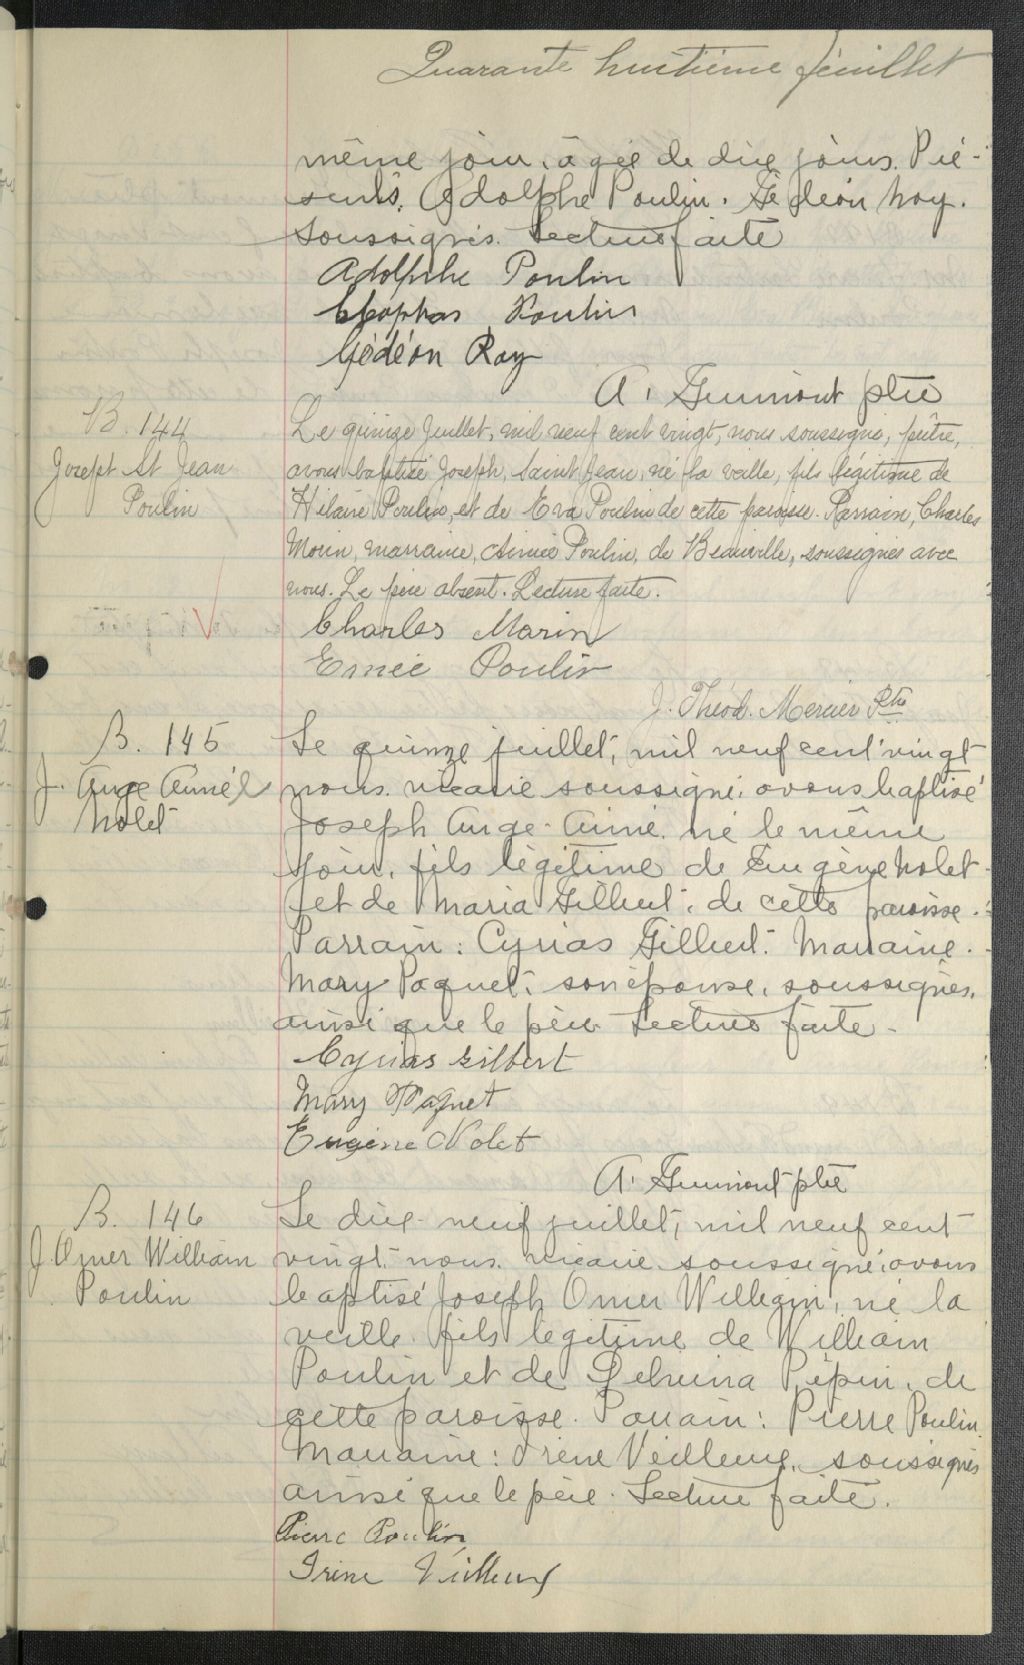 Quarante huitième feuillet
même jour, âgée de dix jours. Pré-
sents, Adolphe Poulin. Gédéon Roy.
soussignés. Lecture faite
Adolphe Poulin
Cléophas Poulin
Gédéon Roy
A. Gumont ptre
B. 144
Joseph St Jean
Poulin
Le quinze Juillet, mil neuf cent vingt, nous soussigné, prêtre,
avons baptisé Joseph, Saint Jean, né la veille, fils légitime de
Hilaire Poulin, et de Eva Poulin de cette paroisse. Parrain, Charles
Morin, marraine, Aimée Poulin, de Beauville, soussignés avec
nous. Le père absent. Lecture faite.
Charles Morin
Emée Poulin
J. Théod. Mercier Ptre
B. 145
J. Ange Aimé
Nolet
Le quinze juillet, mil neuf cent vingt
nous vicaire soussigné, avons baptisé
Joseph Ange-Aimé, né le même
jour, fils légitime de Eugène Nolet
et de Maria Gilbert, de cette paroisse.
Parrain: Cyrias Gilbert. Marraine.
Mary Paquet, son épouse, soussignés,
ainsi que le père. Lecture faite.
Cyrias Gilbert
Mary Paquet
Eugène Nolet
A. Gumont ptre
B. 146
J. Omer William
Poulin
Le dix-neuf juillet, mil neuf cent
vingt, nous vicaire soussigné, avons
baptisé Joseph Omer William, né la
veille fils légitime de William
Poulin et de Delvina Pépin, de
cette paroisse. Parrain: Pierre Poulin.
Marraine: Irène Veilleux, soussignés
ainsi que le père. Lecture faite.
Pierre Poulin
Irène Veilleux